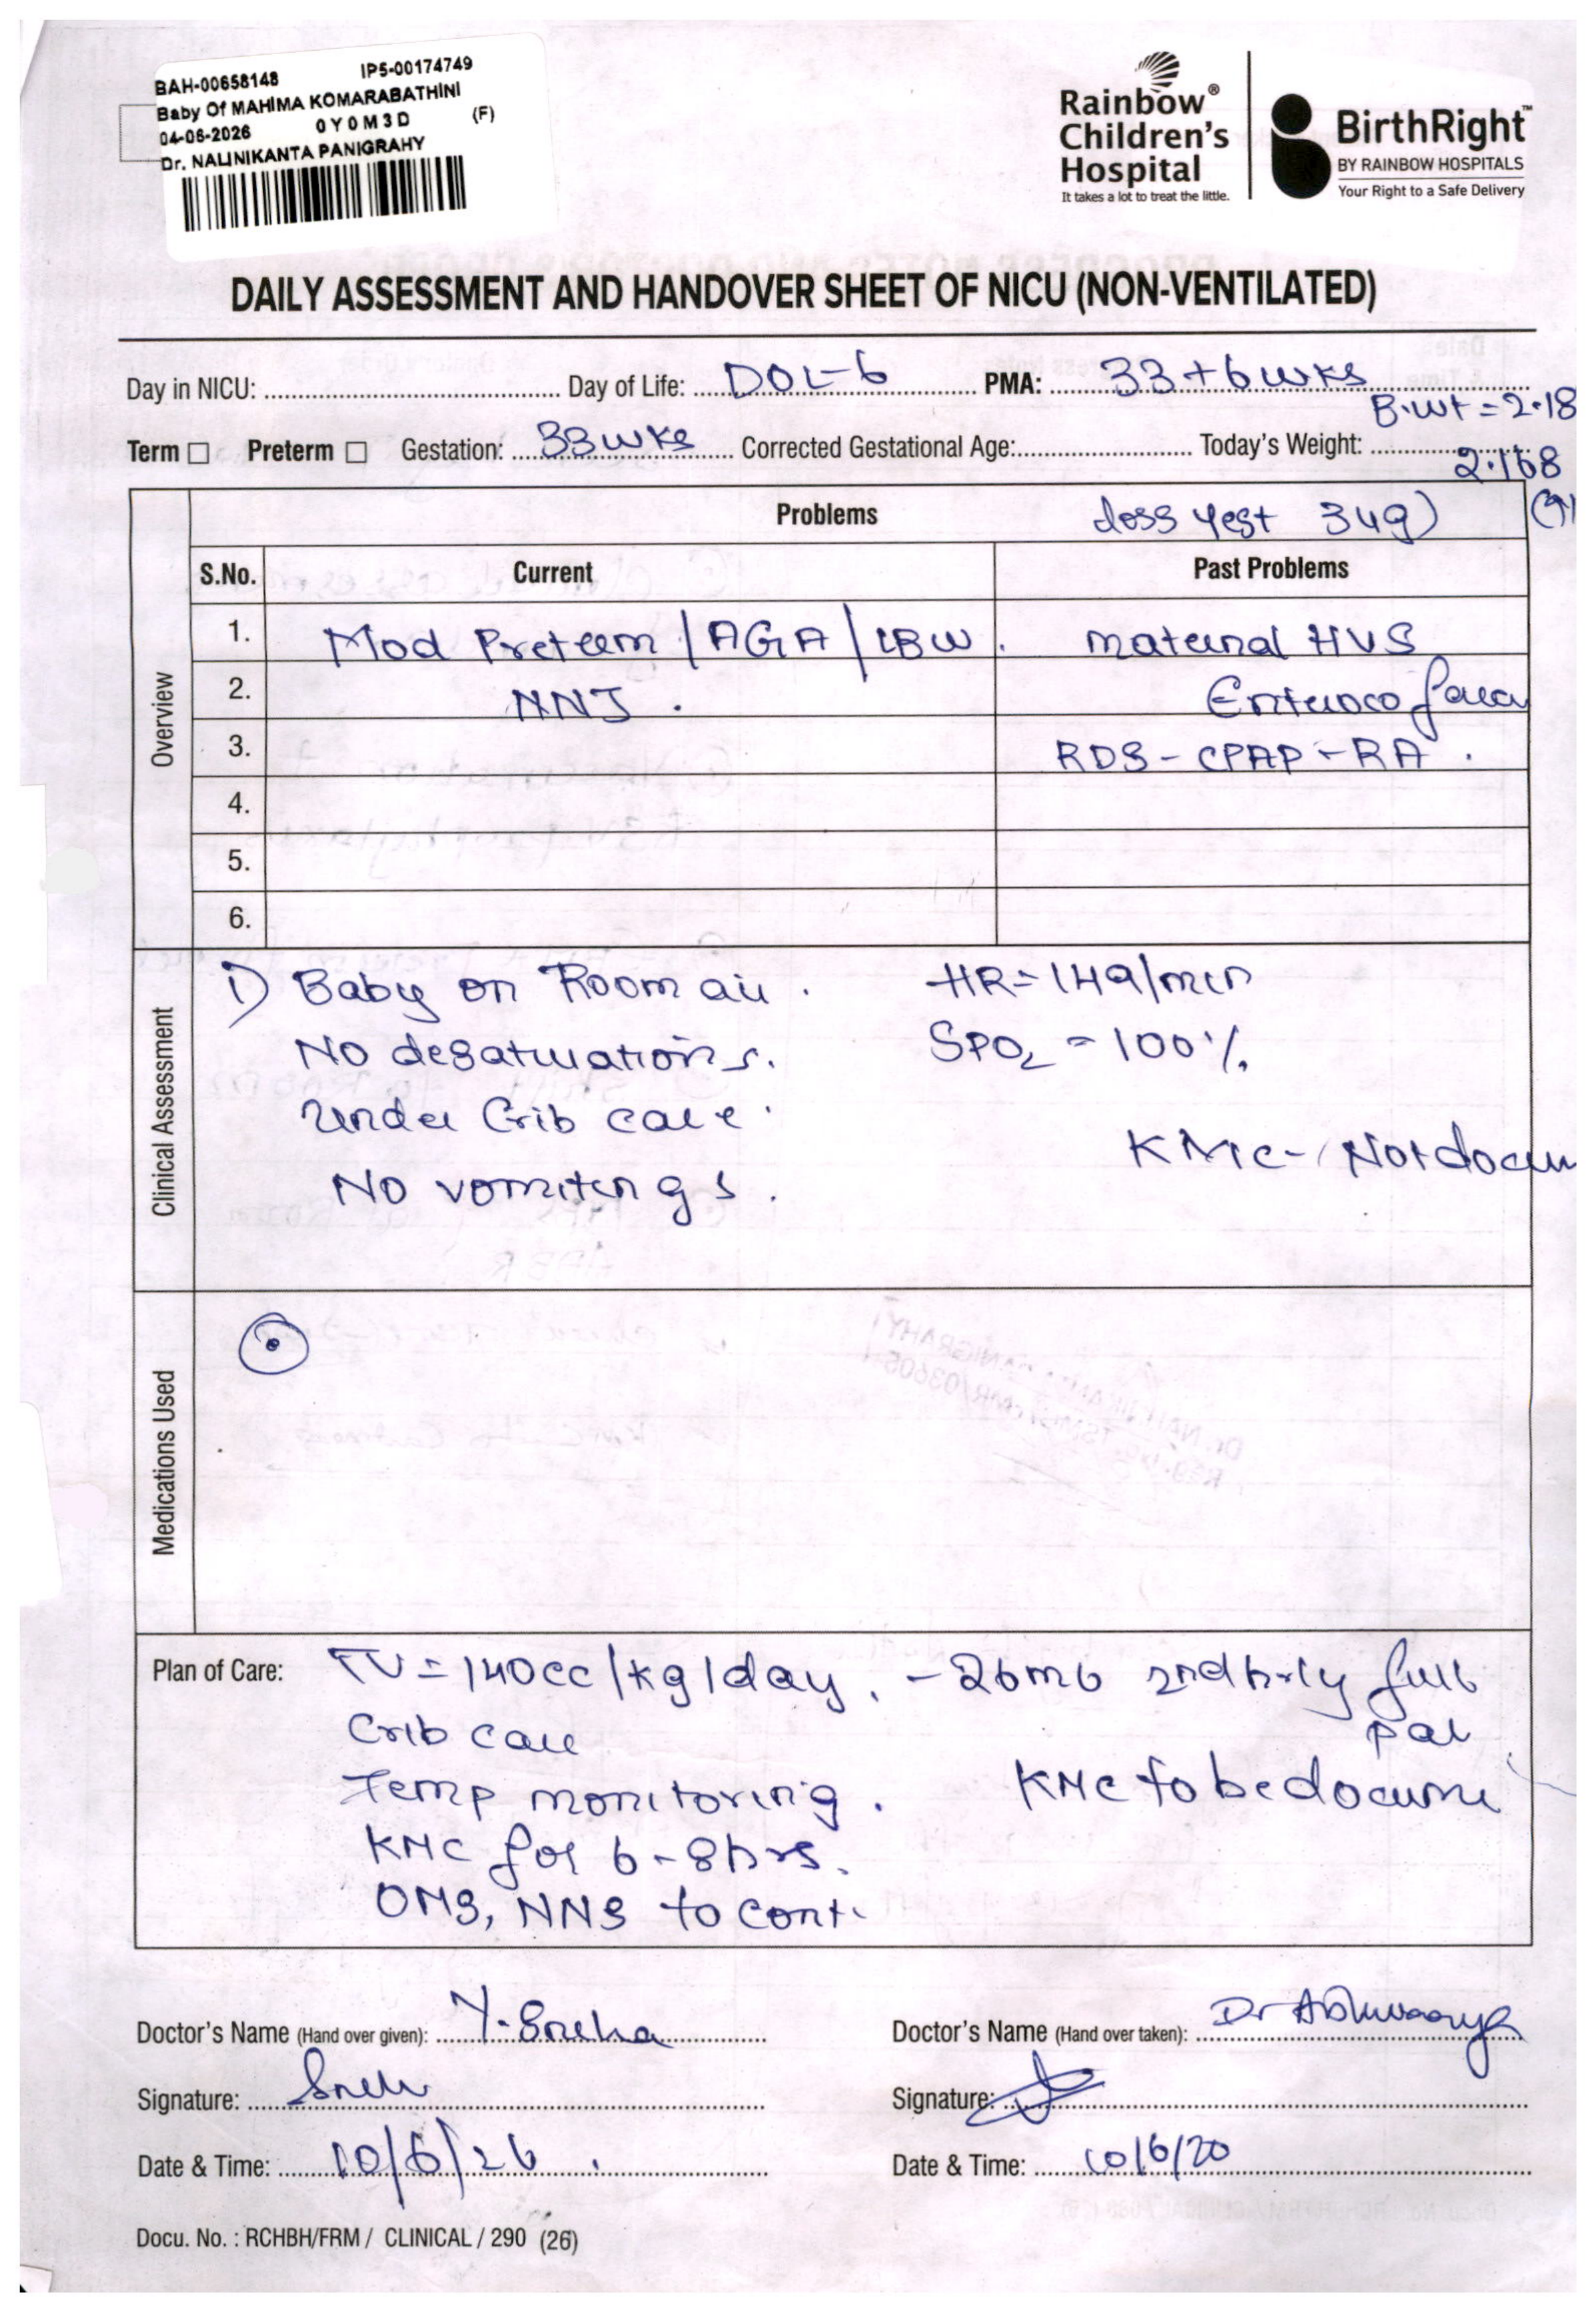 BAH-00658148 IP5-00174749
Baby Of MAHIMA KOMARABATHINI
04-06-2026 0 Y 0 M 3 D (F)
Dr. NALINIKANTA PANIGRAHY
Rainbow® Children's Hospital
It takes a lot to treat the little.
BirthRight™
BY RAINBOW HOSPITALS
Your Right to a Safe Delivery
DAILY ASSESSMENT AND HANDOVER SHEET OF NICU (NON-VENTILATED)
Day in NICU: Day of Life: DOL-6 PMA: 33+6wks
B.wt = 2.18
Term ☐ Preterm ☐ Gestation: 33wks Corrected Gestational Age: Today's Weight: 2.168
Problems loss yest 34g)
S.No. Current Past Problems
Overview
1. Mod Preterm / AGA / LBW. maternal HVS
2. NNJ. Enterococ faeca
3. RDS - CPAP - RA.
4.
5.
6.
Clinical Assessment
1) Baby on Room air. HR = 149/min
No desaturations. SPO2 = 100%.
Under Crib care. KMC - Not docum
No vomitings.
Medications Used
Plan of Care: TV = 140cc/kg/day. - 26ml 2nd hrly full
Crib care pal
Temp monitoring. KMC to be docume
KMC for 6-8hrs.
OMS, NNS to cont.
Doctor's Name (Hand over given): Y. Sneha Doctor's Name (Hand over taken): Dr Aishwarya
Signature: Sneh Signature:
Date & Time: 10/6/26. Date & Time: 10/6/20
Docu. No. : RCHBH/FRM / CLINICAL / 290 (26)